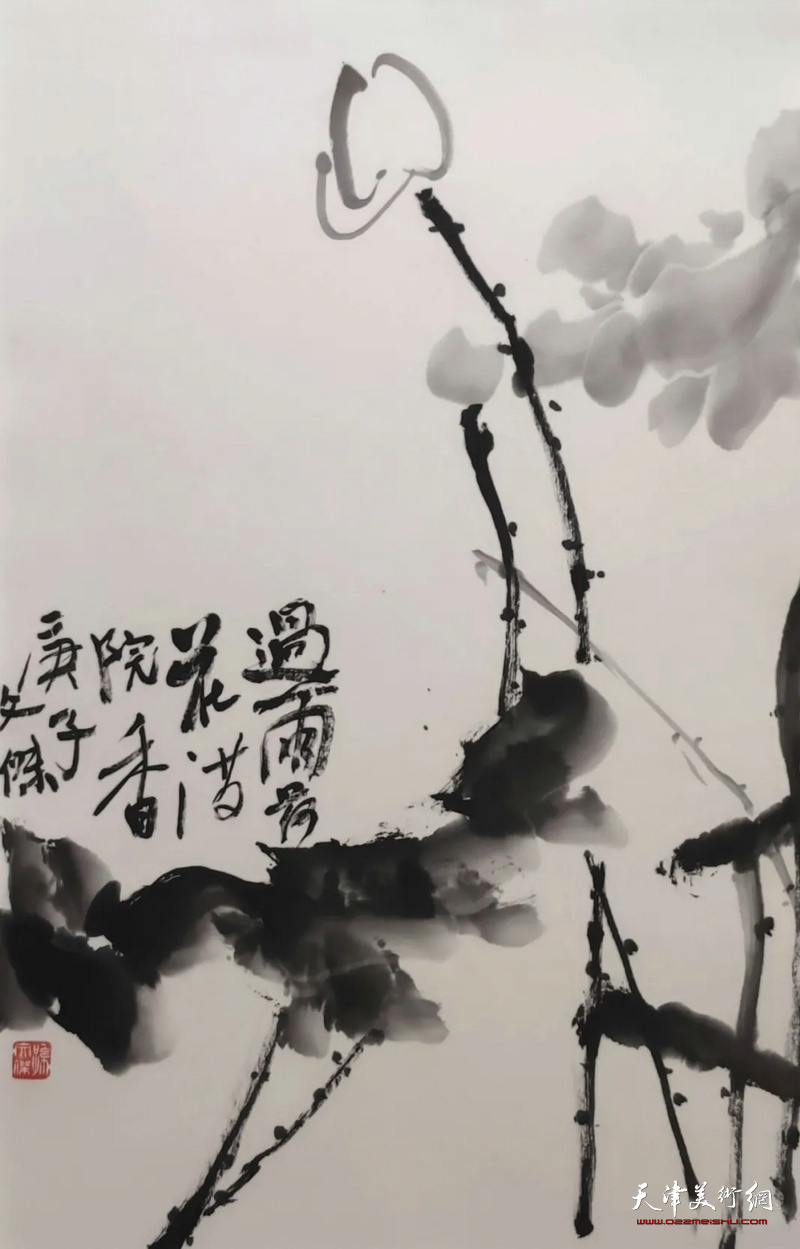 過雨荷
花滿
院香
庚子
文傑
天津美術網
www.022meishu.com